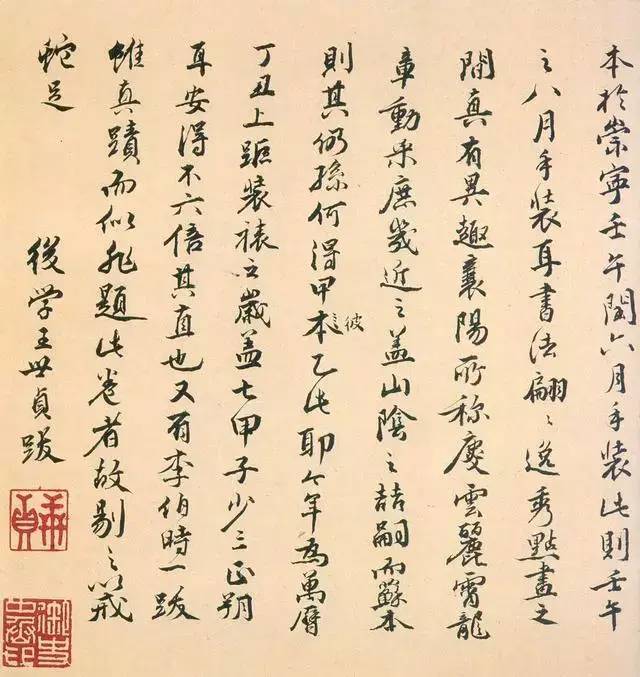 本於崇寧壬午閏六月手裝此則壬午
之八月手裝耳書法翩〻逸秀點畫之
間真有異趣襄陽所稱慶雲麗霄龍
章動采庶幾近之蓋山陰之喆嗣而蘇本
則其仍孫何得甲本乙此耶今年為萬曆
彼
丁丑上距裝裱之歲蓋七甲子少三正朔
耳安得不六倍其直也又有李伯時一跋
雖真蹟而似非題此卷者故剔之以戒
蛇足
後学王世貞跋